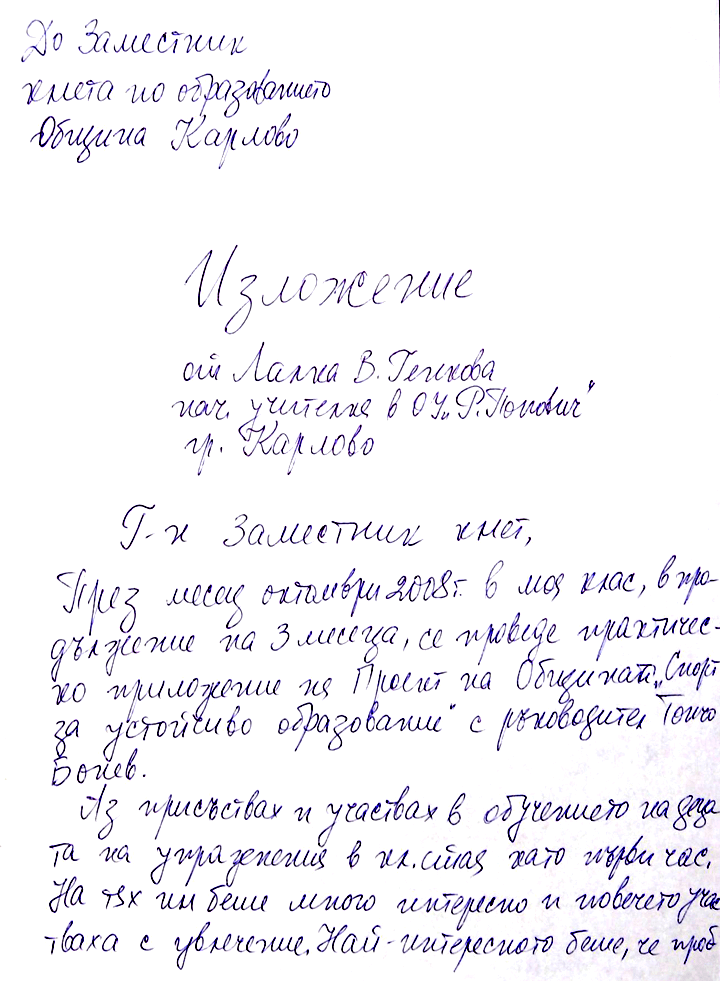 До Заместник
кмета по образованието
Община Карлово
Изложение
от Лалка В. Генкова
нач. учителка в ОУ „Р. Попович"
гр. Карлово
Г-н Заместник кмет,
През месец октомври 2008 г. в моя клас, в про-
дължение на 3 месеца, се проведе практичес-
ко приложение на Проект на Общината „Спорт
за устойчиво образование" с ръководител Тончо
Бонев.
Аз присъствах и участвах в обучението на деца
та на упражнения в кл. стая като първи час.
На тях им беше много интересно и повечето учас
тваха с увлечение. Най-интересното беше, че проб